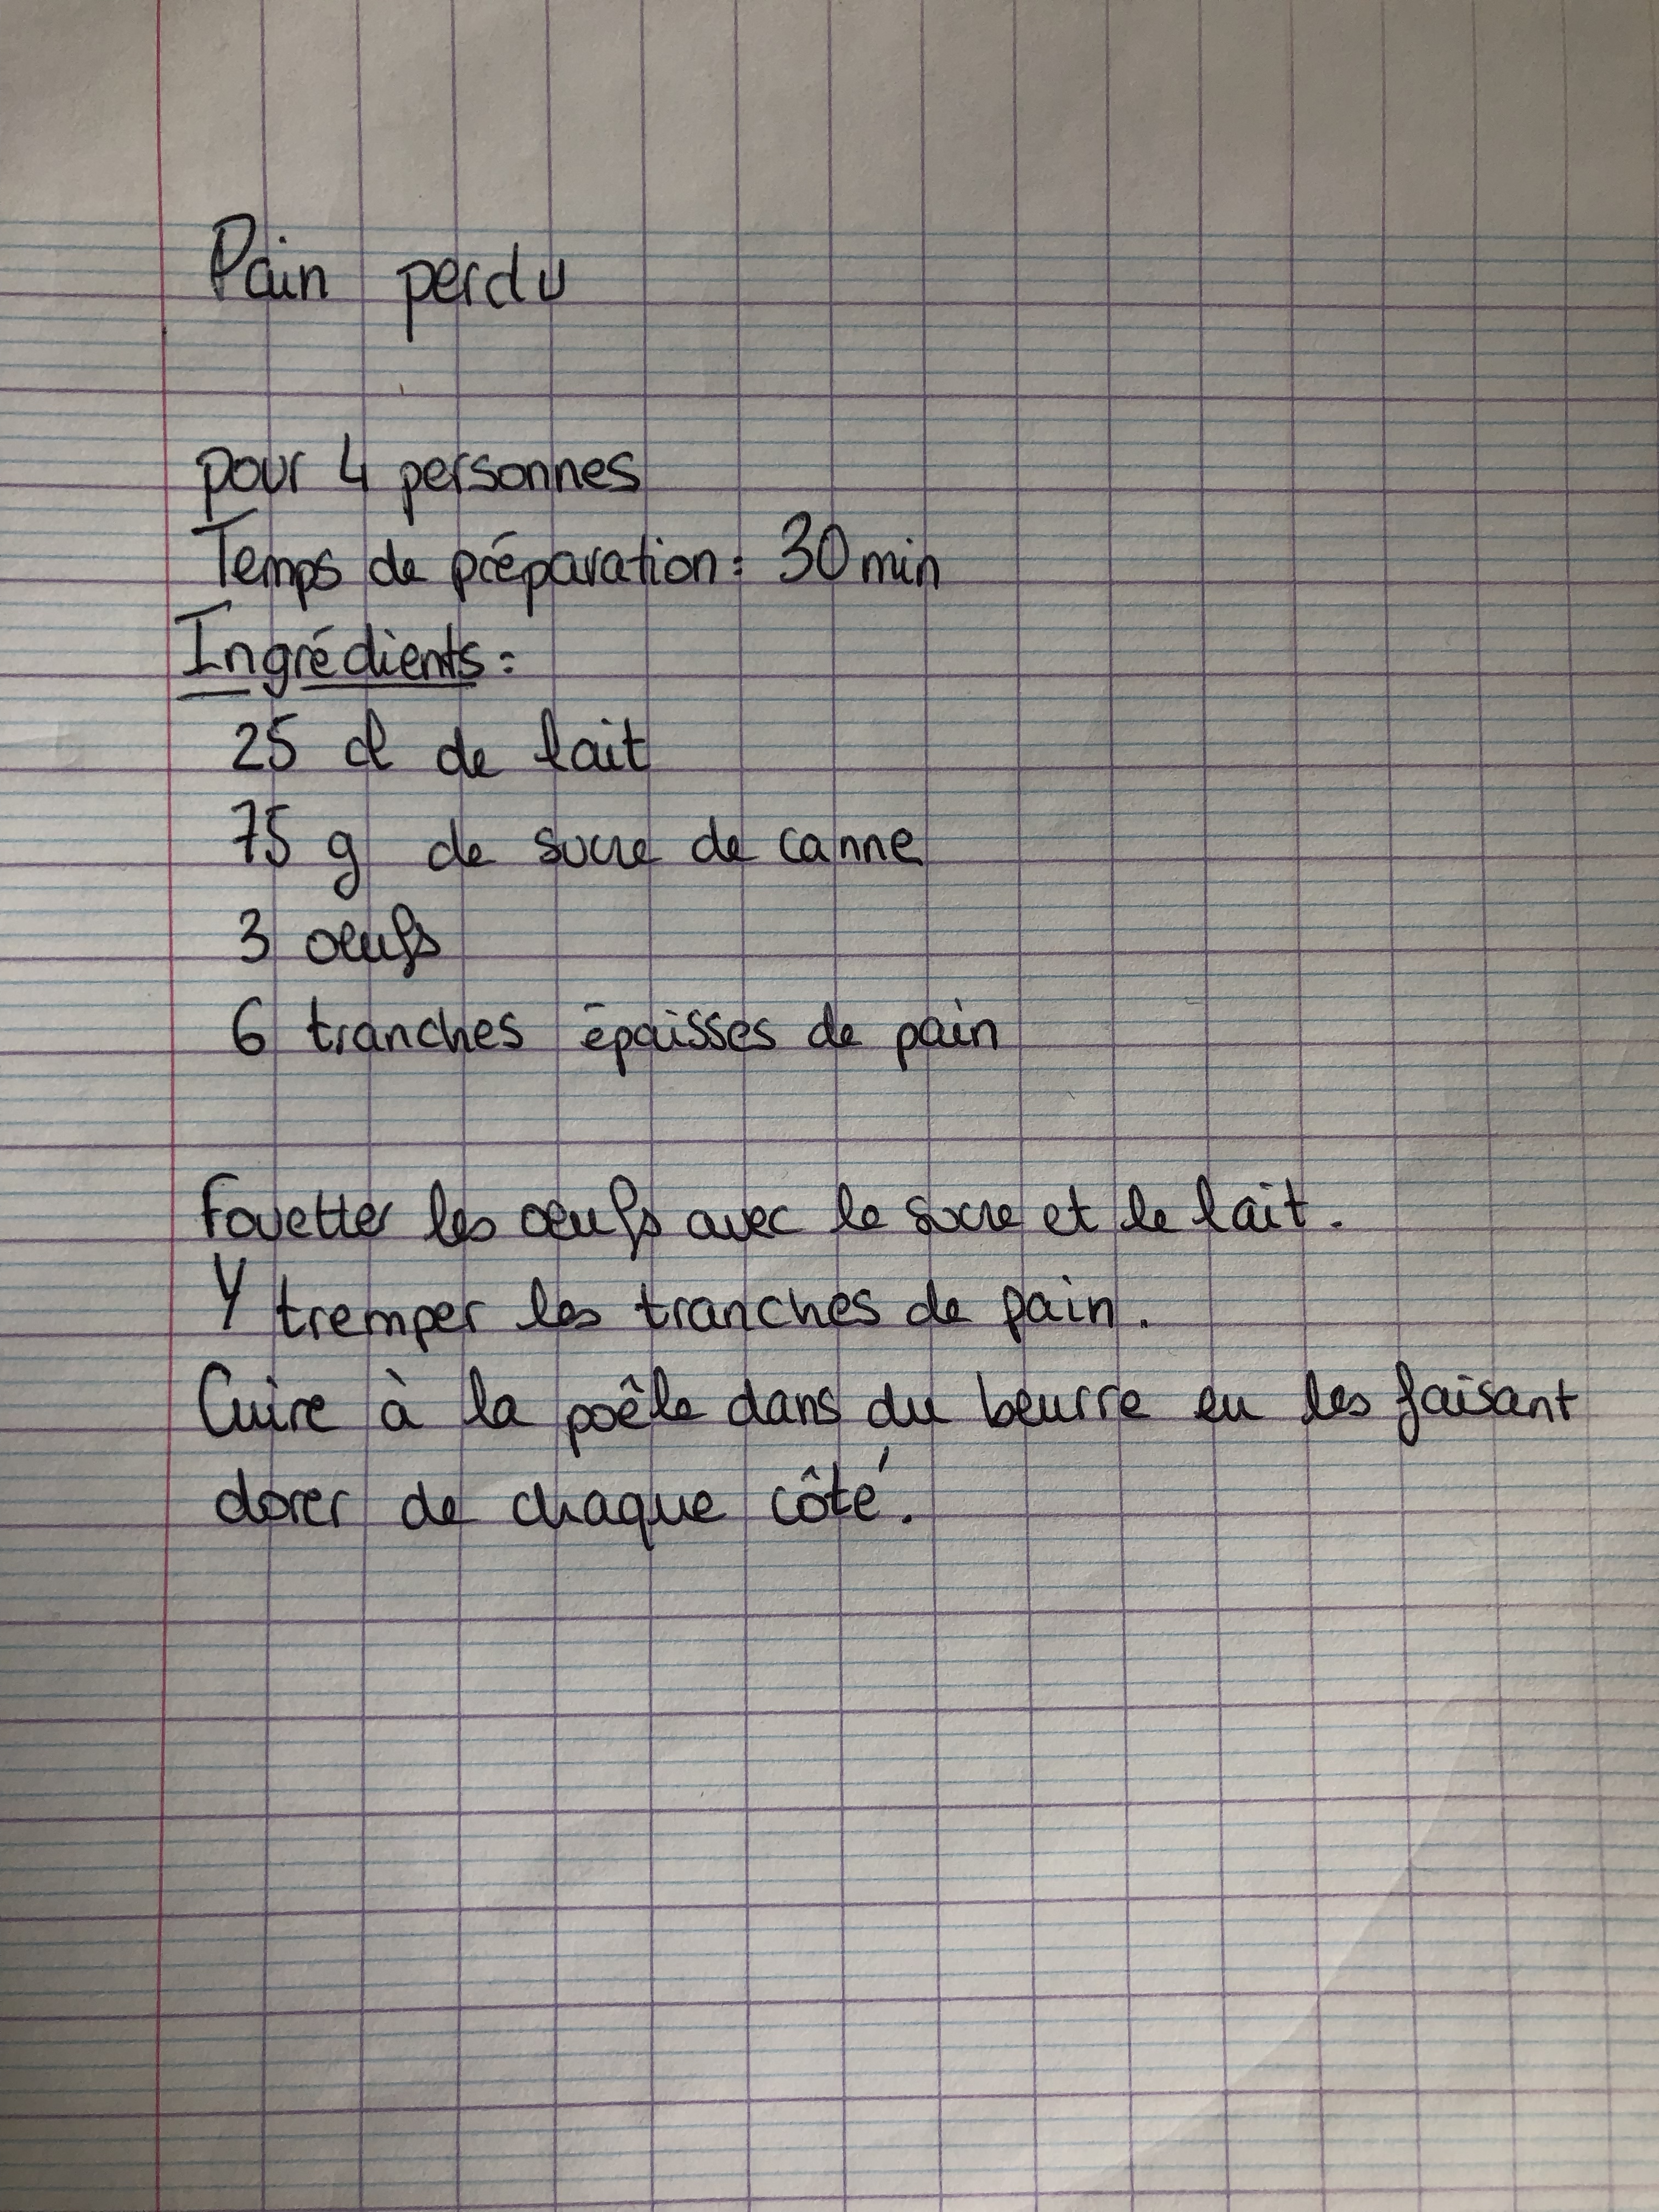 Pain perdu
pour 4 personnes
Temps de préparation : 30 min
Ingrédients :
25 cl de lait
75 g de sucre de canne
3 oeufs
6 tranches épaisses de pain
Fouetter les oeufs avec le sucre et le lait.
Y tremper les tranches de pain.
Cuire à la poêle dans du beurre en les faisant
dorer de chaque côté.